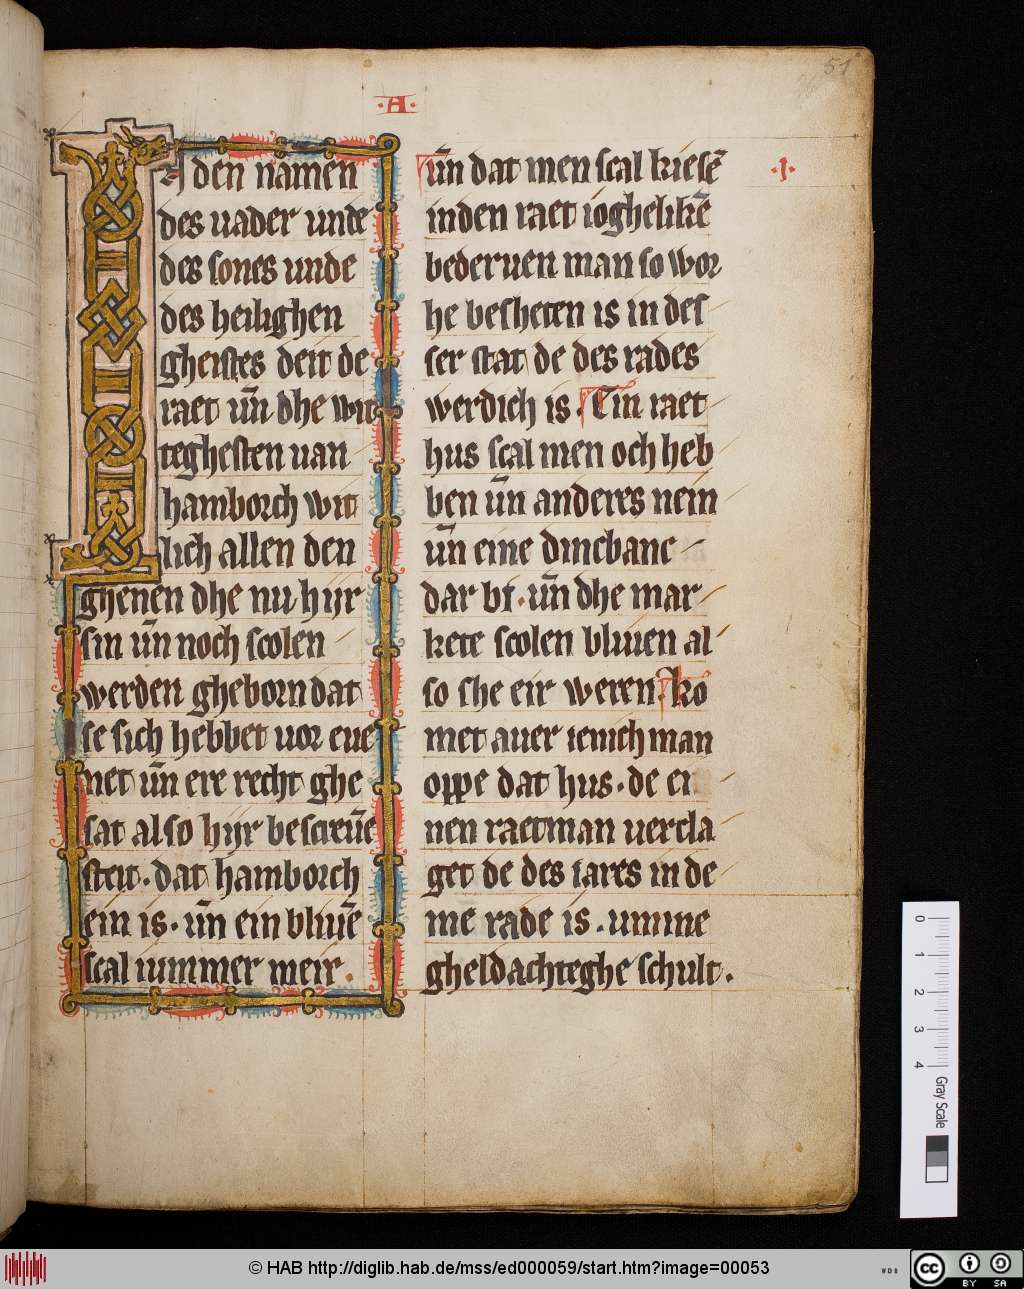 51
·A·
IN den namen
des uader unde
des sones unde
des heilighen
gheistes deit de
raet un̄ dhe wit
teghesten uan
hamborch wit
lich allen den
ghenen dhe nu hyr
sin un̄ noch scolen
werden gheborn dat
se sich hebbet uor eue
net un̄ ere recht ghe
sat also hyr bescreue̅
steit · dat hamborch
ein is · un̄ ein bliue̅
scal iummer meir ·
un̄ dat men scal kiese̅
inden raet ioghelike̅
bederuen man so wor
he besheten is in des
ser stat de des rades
werdich is · Ein raet
hus scal men och heb
ben un̄ anderes nein
un̄ eine dincbanc
dar bi · un̄ dhe mar
kete scolen bliuen al
so she eir weren · ko
met auer ienich man
oppe dat hus · de ei
nen raetman uercla
get de des iares in de
me rade is · umme
gheldachteghe schult ·
·I·
0
1
2
3
4
Gray Scale
© HAB http://diglib.hab.de/mss/ed000059/start.htm?image=00053
WDB
cc
BY SA